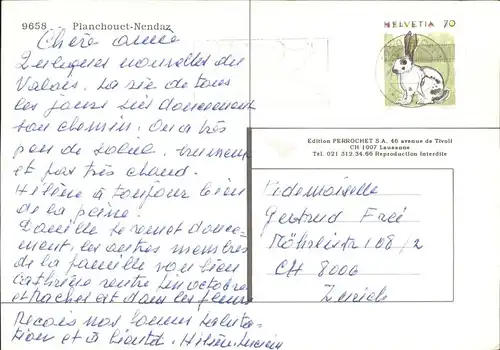 9658 Planchouet-Nendaz
HELVETIA 70
Chère amie
Quelques nouvelles du
Valais. La vie de tous
les jours suit doucement
son chemin. On a très
peu de soleil, vraiment
et pas très chaud.
Hélène a toujours bien
de la peine.
Camille se remet douce-
ment, les autres membres
de la famille vont bien
Cathrine rentre fin octobre
et Rachel est dans les fleurs
Reçois nos bonnes saluta-
tion et à bientôt. Hélène, Lucien
Edition PERROCHET S.A. 46 avenue de Tivoli
CH 1007 Lausanne
Tel. 021 312.34.66 Reproduction interdite
Mademoiselle
Gertrud Frei
Röhrlistr 108/2
CH 8006
Zurich